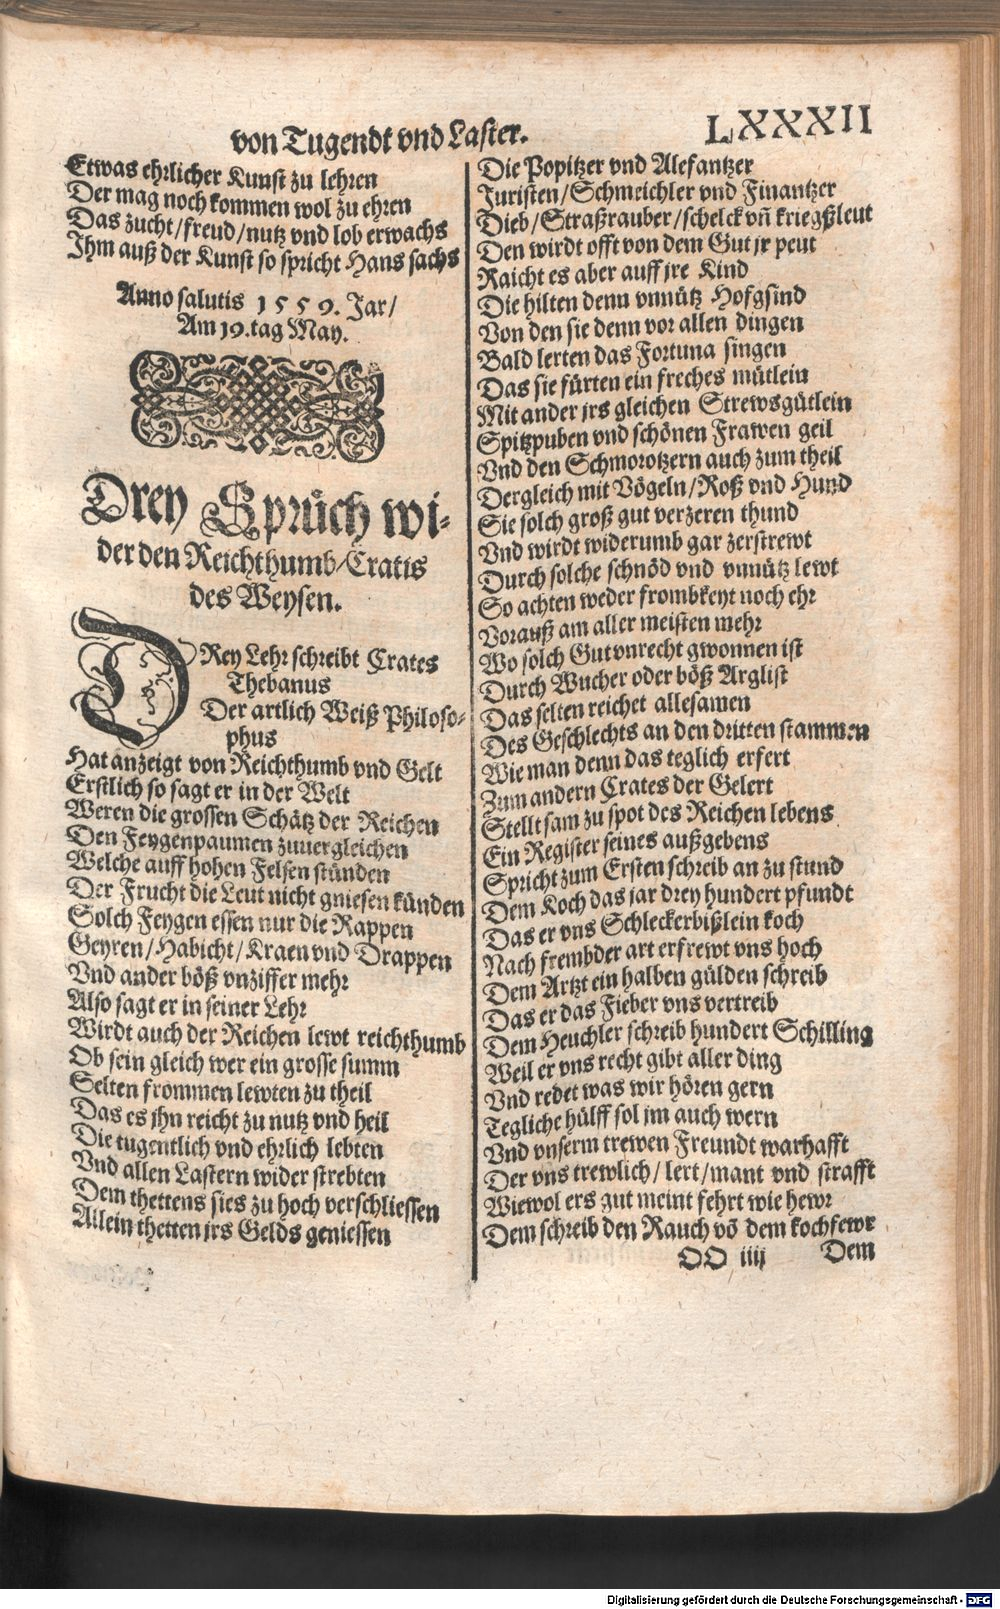 von Tugendt vnd Laster.
LXXXII
Etwas ehrlicher Kunst zu lehren
Der mag noch kommen wol zu ehren
Das zucht/freud/nutz vnd lob erwachs
Ihm auß der Kunst so spricht Hans sachs
Anno salutis 1559. Jar/
Am 19. tag May.
Drey Sprüch wi-
der den Reichthumb/Cratis
des Weysen.
DRey Lehr schreibt Crates
Thebanus
Der artlich Weiß Philoso-
phus
Hat anzeigt von Reichthumb vnd Gelt
Erstlich so sagt er in der Welt
Weren die grossen Schätz der Reichen
Den Feygenpaumen zuuergleichen
Welche auff hohen Felsen stünden
Der Frucht die Leut nicht gniesen künden
Solch Feygen essen nur die Rappen
Geyren/Habicht/Kraen vnd Drappen
Vnd ander böß vnziffer mehr
Also sagt er in seiner Lehr
Wirdt auch der Reichen lewt reichthumb
Ob sein gleich wer ein grosse summ
Selten frommen lewten zu theil
Das es jhn reicht zu nutz vnd heil
Die tugentlich vnd ehrlich lebten
Vnd allen Lastern wider strebten
Dem thettens sies zu hoch verschliessen
Allein thetten jrs Gelds geniessen
Die Popitzer vnd Alefantzer
Juristen/Schmeichler vnd Finantzer
Dieb/Straßrauber/schelck vñ kriegßleut
Den wirdt offt von dem Gut jr peut
Raicht es aber auff jre Kind
Die hilten denn vnnütz Hofgsind
Von den sie denn vor allen dingen
Bald lerten das Fortuna singen
Das sie fürten ein freches mütlein
Mit ander jrs gleichen Strewsgütlein
Spitzpuben vnd schönen Frawen geil
Vnd den Schmorotzern auch zum theil
Dergleich mit Vögeln/Roß vnd Hund
Sie solch groß gut verzeren thund
Vnd wirdt widerumb gar zerstrewt
Durch solche schnöd vnd vnnütz lewt
So achten weder frombkeyt noch ehr
Vorauß am aller meisten mehr
Wo solch Gut vnrecht gwonnen ist
Durch Wucher oder böß Arglist
Das selten reichet allesamen
Des Geschlechts an den dritten stammen
Wie man denn das teglich erfert
Zum andern Crates der Gelert
Stellt sam zu spot des Reichen lebens
Ein Register seines außgebens
Spricht zum Ersten schreib an zu stund
Dem Koch das jar drey hundert pfundt
Das er vns Schleckerbißlein koch
Nach frembder art erfrewt vns hoch
Dem Artzt ein halben gülden schreib
Das er das Fieber vns vertreib
Dem Heuchler schreib hundert Schilling
Weil er vns recht gibt aller ding
Vnd redet was wir hören gern
Tegliche hülff sol jm auch wern
Vnd vnserm trewen Freundt warhafft
Der vns trewlich/lert/mant vnd strafft
Wiewol ers gut meint fehrt wie hewr
Dem schreib den Rauch võ dem kochfewr
OO iiij
Dem
Digitalisierung gefördert durch die Deutsche Forschungsgemeinschaft - DFG